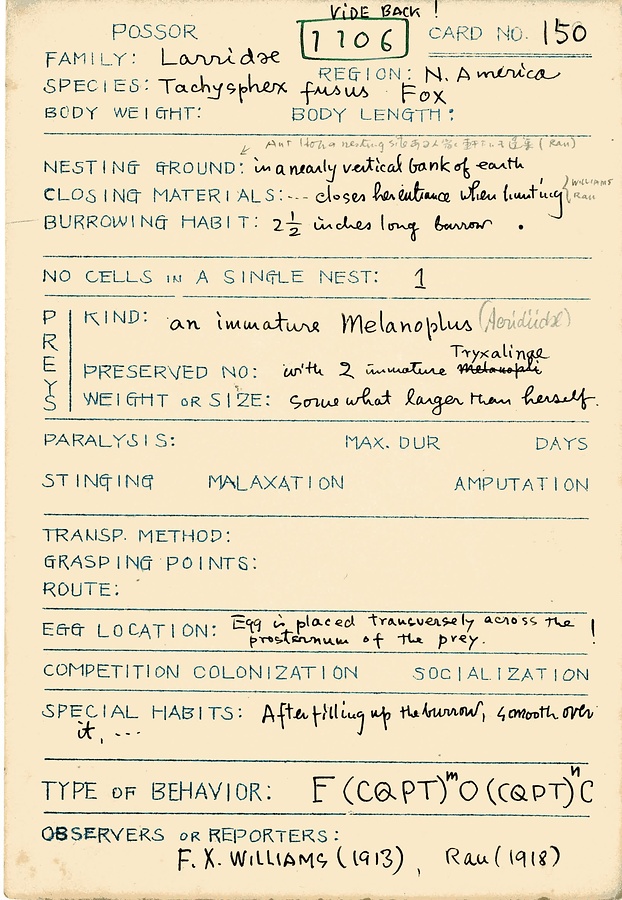 VIDE BACK !
POSSOR 1106 CARD NO. 150
FAMILY: Larridae
REGION: N. America
SPECIES: Tachysphex fusus Fox
BODY WEIGHT: BODY LENGTH:
(Rau)
NESTING GROUND: in a nearly vertical bank of earth
CLOSING MATERIALS: --- closes her entrance when hunting } WILLIAMS Rau
BURROWING HABIT: 2 1/2 inches long burrow .
NO CELLS IN A SINGLE NEST: 1
PREYS
KIND: an immature Melanoplus (Acridiidae)
Tryxalinae
PRESERVED NO: with 2 immature Melanopli
WEIGHT OR SIZE: somewhat larger than herself.
PARALYSIS: MAX. DUR DAYS
STINGING MALAXATION AMPUTATION
TRANSP. METHOD:
GRASPING POINTS:
ROUTE:
EGG LOCATION: Egg is placed transversely across the
prosternum of the prey. !
COMPETITION COLONIZATION SOCIALIZATION
SPECIAL HABITS: After filling up the burrow, smooth over
it, ---
TYPE OF BEHAVIOR: F(CQPT)ᵐO(CQPT)ⁿC
OBSERVERS OR REPORTERS:
F. X. WILLIAMS (1913), Rau (1918)